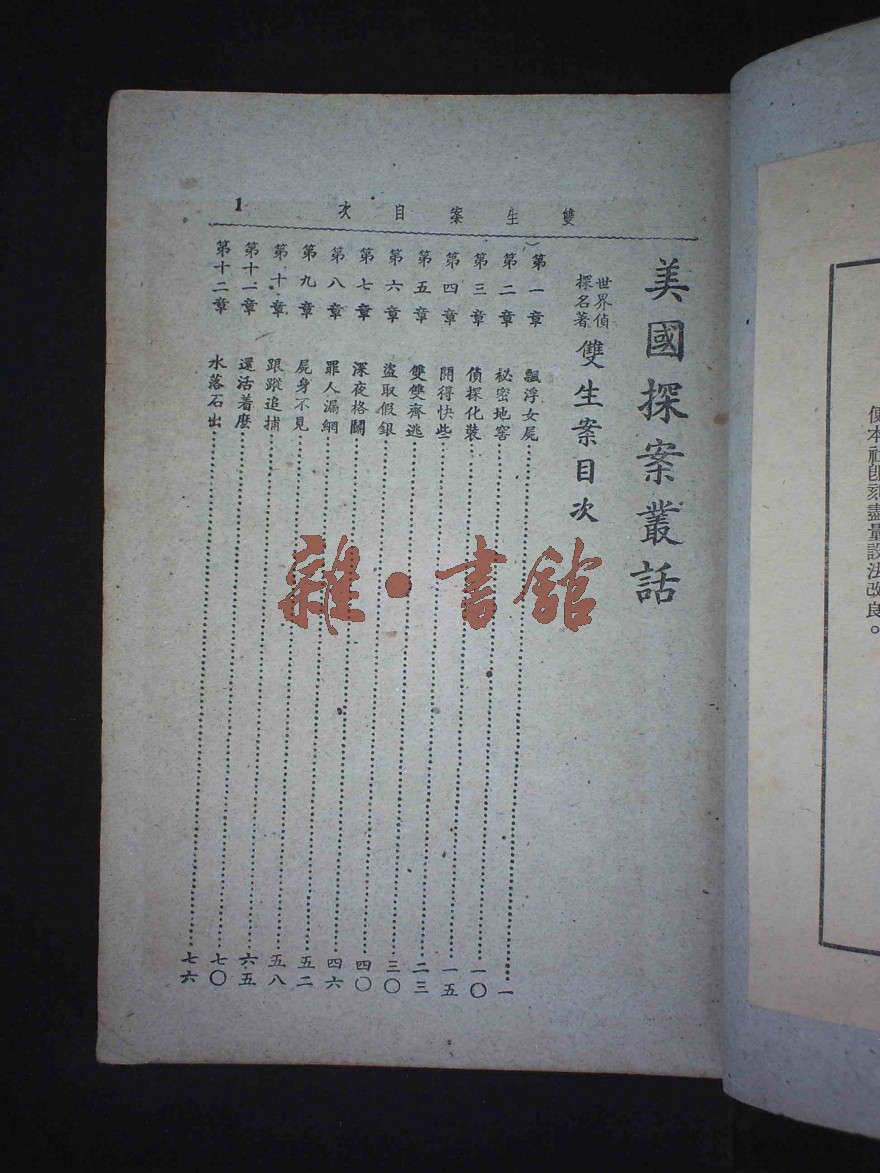 雙生案目次
1
美國探案叢話
世界偵探名著
雙生案目次
第一章 飄浮女屍 一
第二章 祕密地窖 一〇
第三章 偵探化裝 一五
第四章 開得快些 二三
第五章 雙雙齊逃 三〇
第六章 盜取假銀 四〇
第七章 深夜格鬭 四六
第八章 罪人漏網 五二
第九章 屍身不見 五八
第十章 跟蹤追捕 六五
第十一章 還活着麽 七〇
第十二章 水落石出 七六
雜·書館
便本社卽刻盡量設法改良。